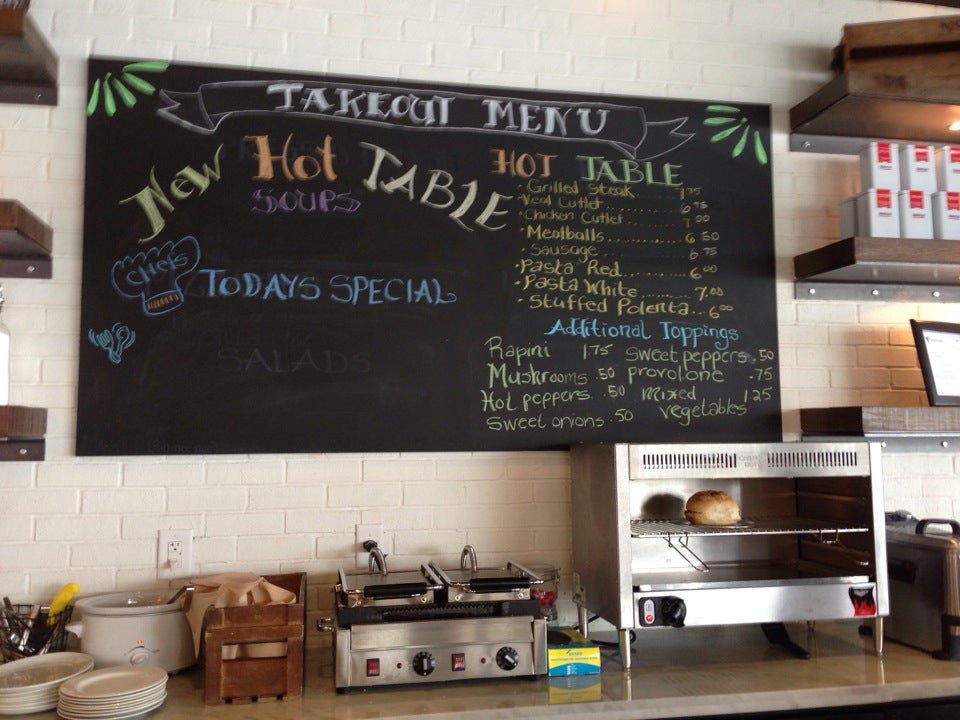 TAKEOUT MENU
New Hot TABLE
SOUPS
CHEFS
TODAYS SPECIAL
SALADS
HOT TABLE
• Grilled Steak 7.75
• Veal Cutlet ........ 6.75
• Chicken Cutlet ........ 7.00
• Meatballs ........ 6.50
• Sausage ........ 6.75
• Pasta Red ........ 6.00
• Pasta White ........ 7.00
• Stuffed Polenta... 6.00
Additional Toppings
Rapini 1.75 sweet peppers .50
Mushrooms .50 provolone .75
Hot peppers .50 mixed vegetables 1.25
sweet onions .50